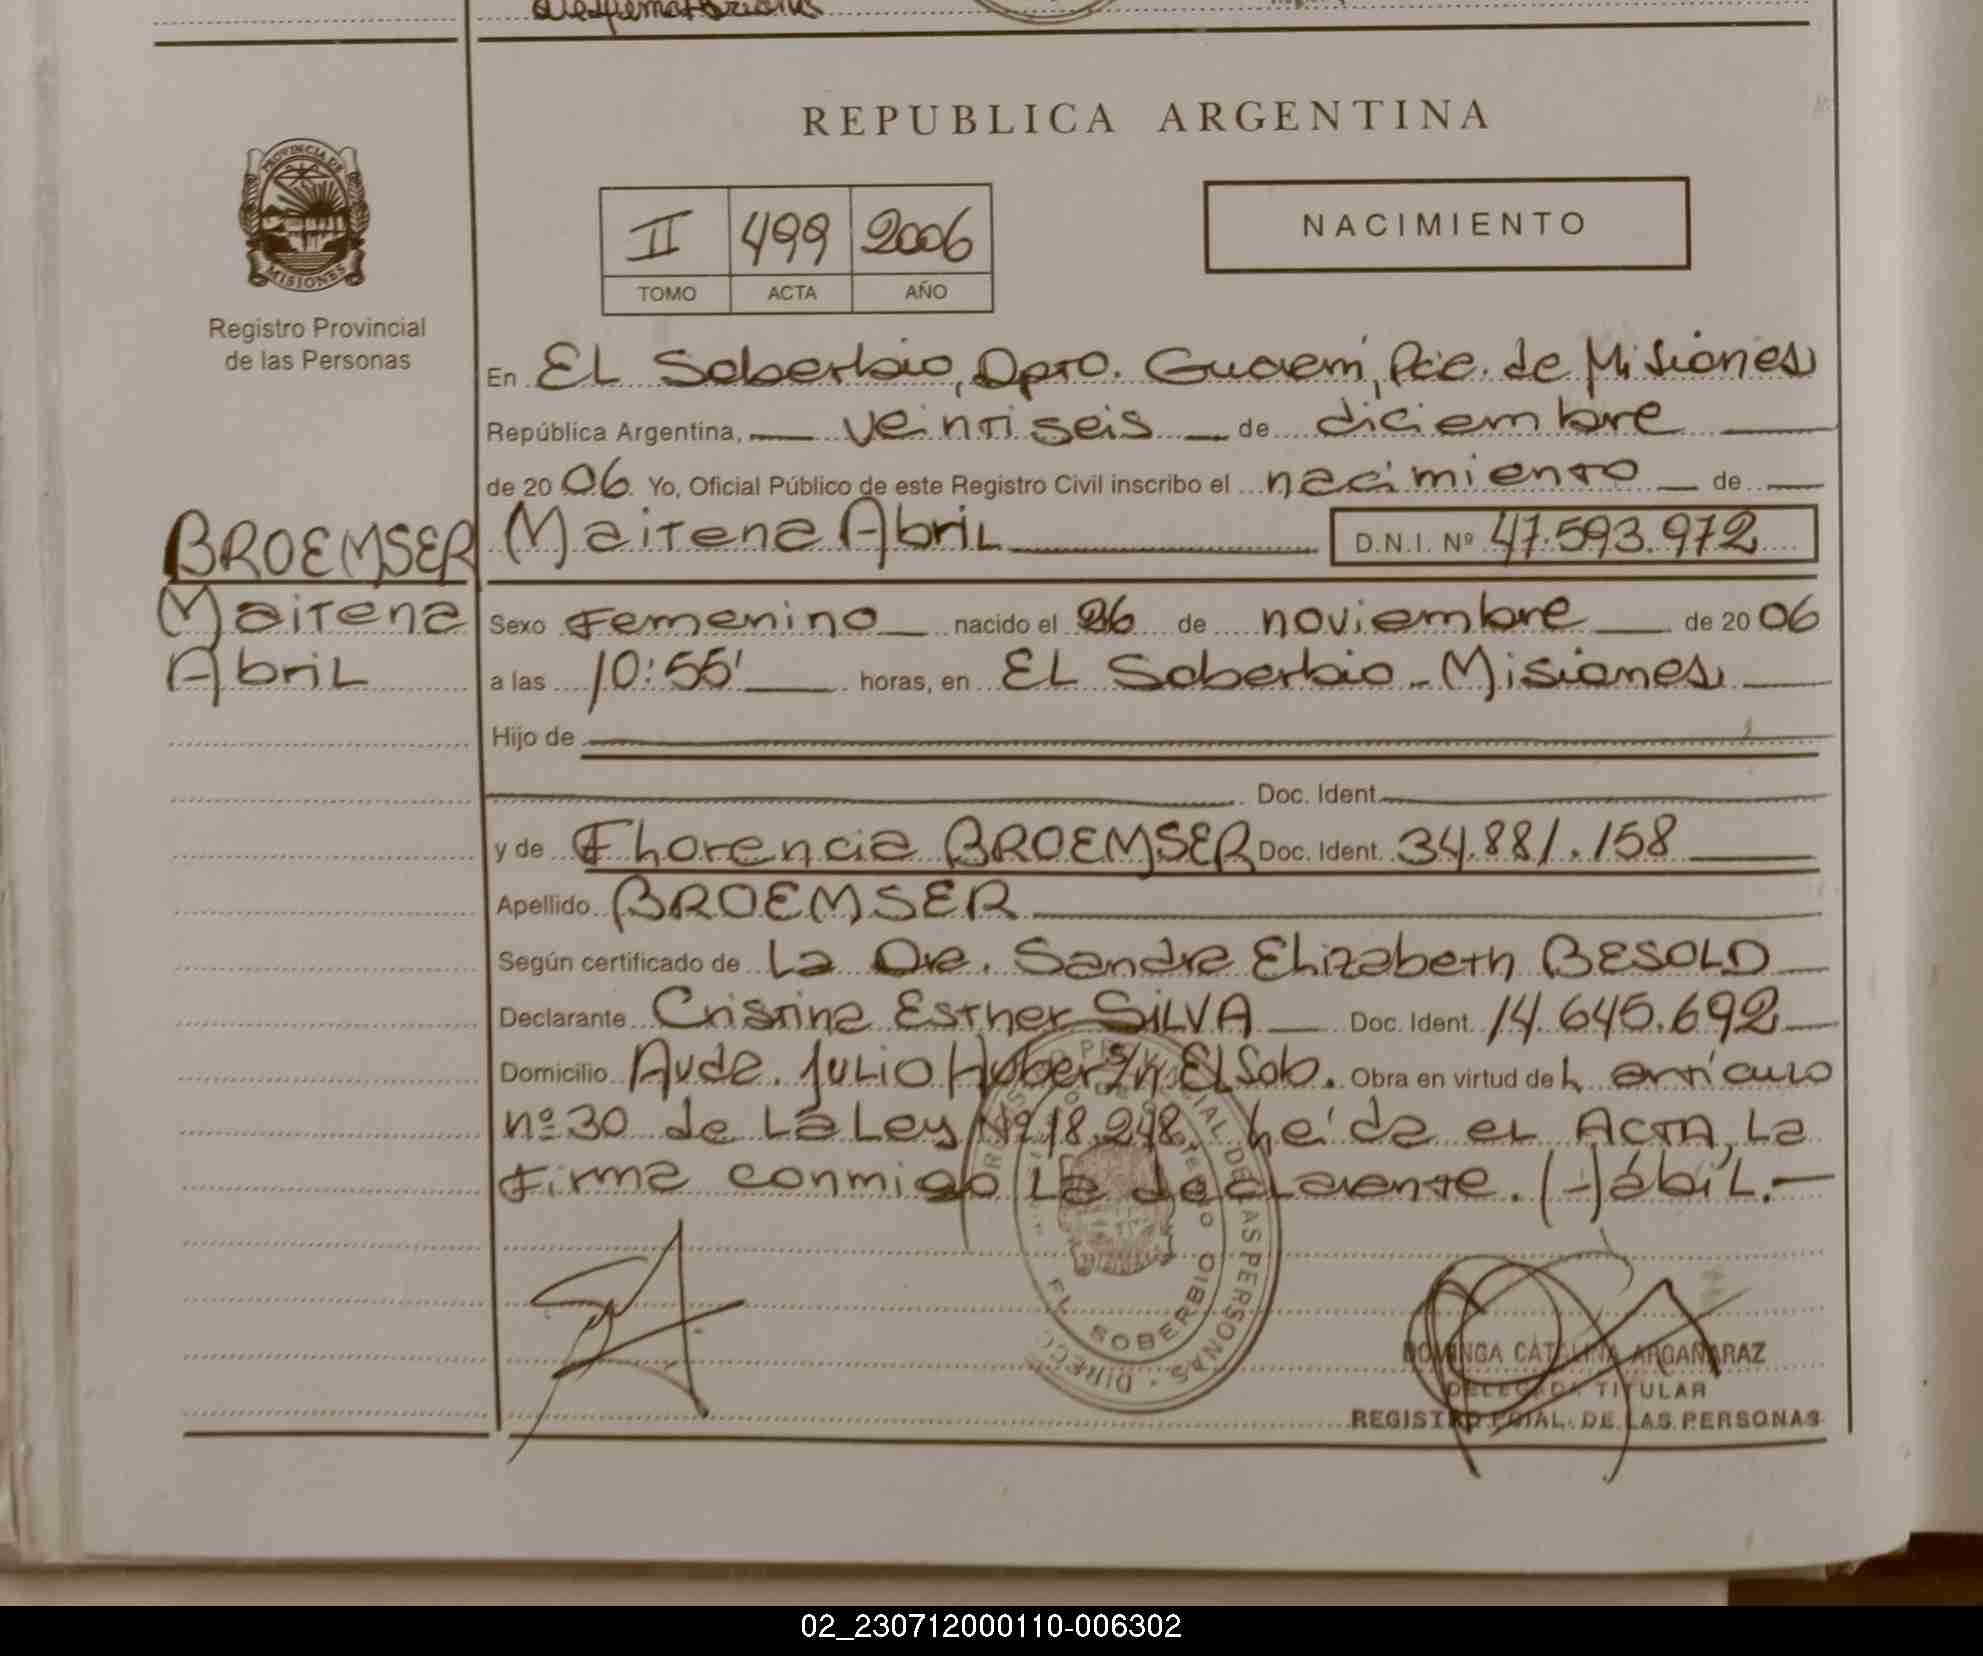 REPUBLICA ARGENTINA
PROVINCIA DE
MISIONES
Registro Provincial
de las Personas
II 499 2006
TOMO ACTA AÑO
NACIMIENTO
En EL Soberbio, Dpto. Guaraní, Pcia. de Misiones
República Argentina, veintiseis de diciembre
de 2006 Yo, Oficial Público de este Registro Civil inscribo el nacimiento de
BROEMSER
Maitena
Abril
Maitena Abril D.N.I. Nº 47.593.972
Sexo Femenino nacido el 26 de noviembre de 2006
a las 10:55' horas, en EL Soberbio - Misiones
Hijo de
Doc. Ident.
y de Florencia BROEMSER Doc. Ident. 34.881.158
Apellido BROEMSER
Según certificado de La Dra. Sandra Elizabeth BESOLD
Declarante Cristina Esther SILVA Doc. Ident. 14.645.692
Domicilio Avda. Julio Huber S/N EL Sob. Obra en virtud del artículo
nº 30 de La Ley Nº 18.248. Leída el ACTA, La
Firma conmigo La declarante. (-) ábil.-
EL SOBERBIO
DE LAS PERSONAS
DOMINGA CATALINA ARGAÑARAZ
DELEGADA TITULAR
REGISTRO PCIAL. DE LAS PERSONAS
02_230712000110-006302